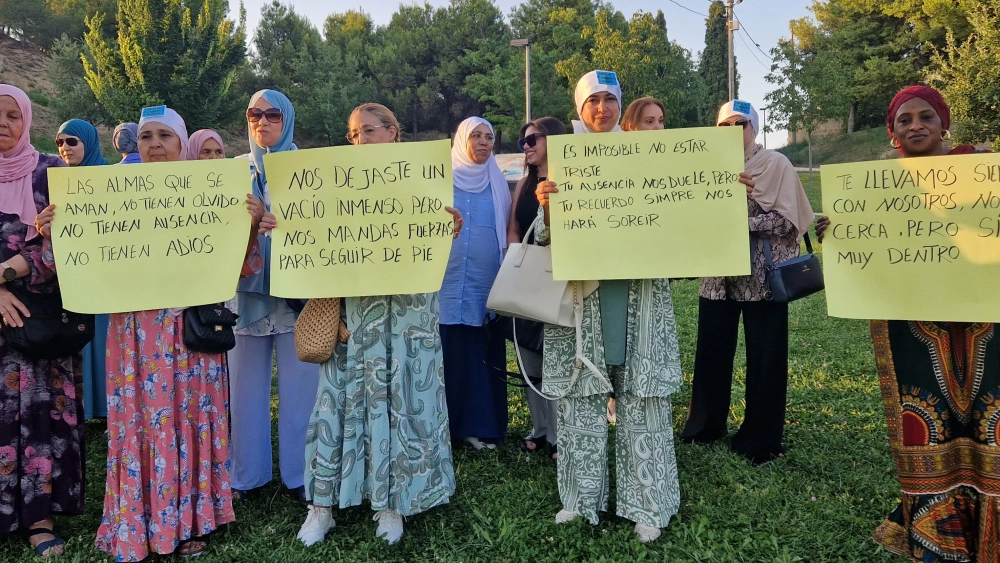 LAS ALMAS QUE SE
AMAN, NO TIENEN OLVIDO
NO TIENEN AUSENCIA.
NO TIENEN ADIOS
NOS DEJASTE UN
VACIO INMENSO PERO
NOS MANDAS FUERZAS
PARA SEGUIR DE PIE
ES IMPOSIBLE NO ESTAR
TRISTE
TU AUSENCIA NOS DUELE, PERO
TU RECUERDO SIMPRE NOS
HARÁ SOREIR
TE LLEVAMOS SIE
CON NOSOTROS, NO
CERCA, PERO SI
MUY DENTRO